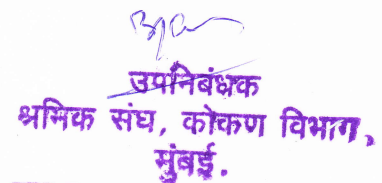 उपनिबंधक
श्रमिक संघ, कोकण विभाग,
मुंबई.